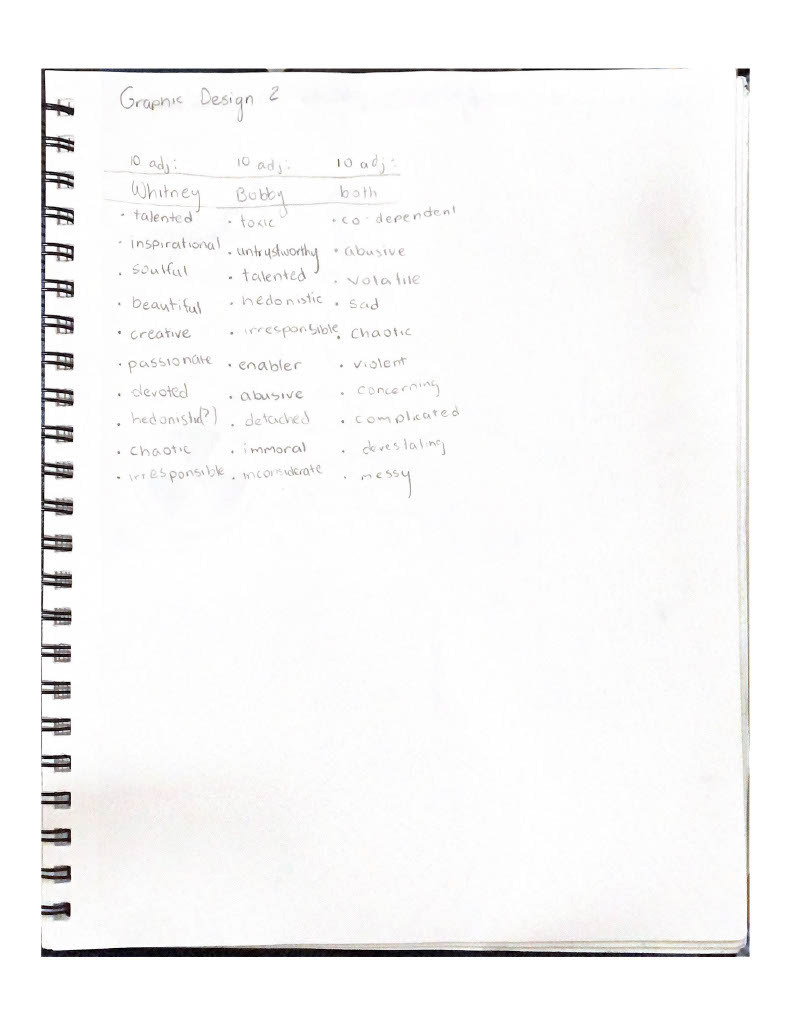 Graphic Design 2
10 adj: 10 adj: 10 adj:
Whitney Bobby both
• talented • toxic • co-dependent
• inspirational • untrustworthy • abusive
• soulful • talented • volatile
• beautiful • hedonistic • sad
• creative • irresponsible • chaotic
• passionate • enabler • violent
• devoted • abusive • concerning
• hedonistic(?) • detached • complicated
• chaotic • immoral • devestating
• irresponsible • inconsiderate • messy